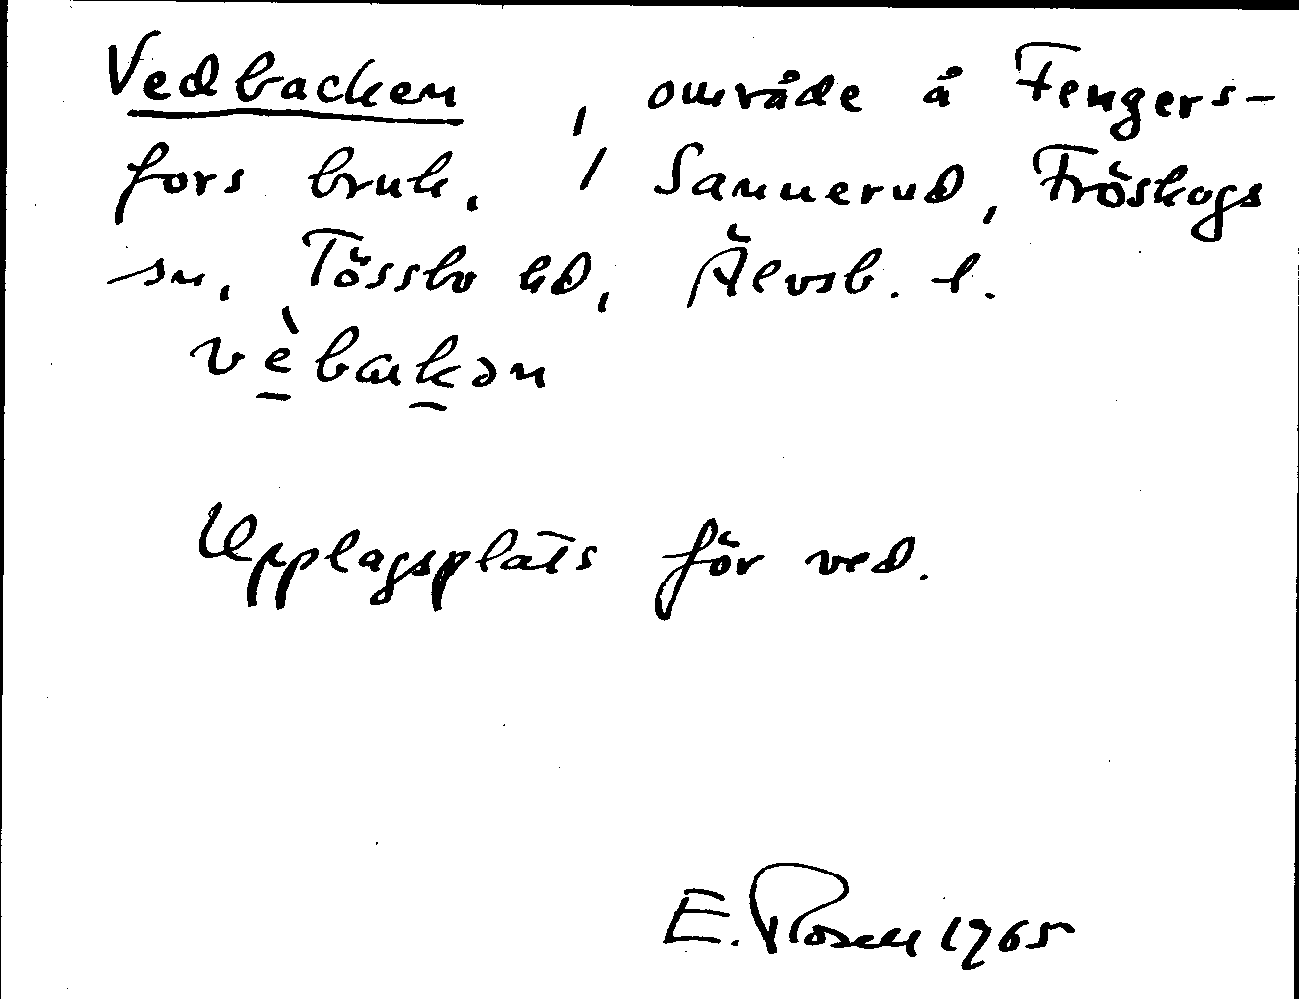 Vedbacken, område å Fengers-
fors bruk. / Sannerud, Fröskogs
sn, Tössbo hd, Älvsb. l.
vèbakən
Upplagsplats för ved.
E. Rosell 1965